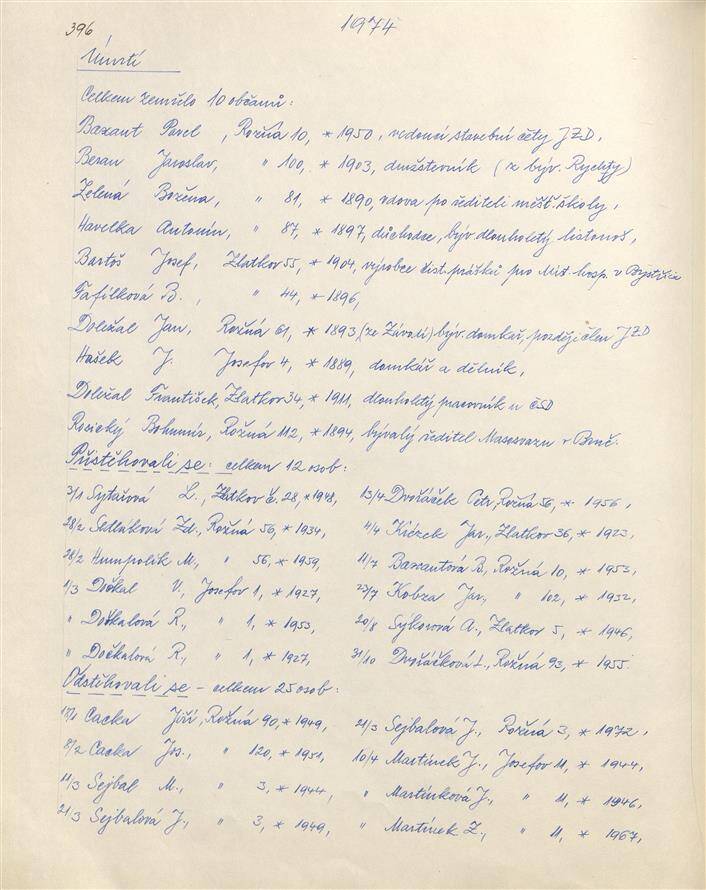 396
1974
Úmrtí
Celkem zemřelo 10 občanů:
Bazant Pavel, Rožná 10, * 1950, vedoucí stavební čety JZD,
Beran Jaroslav, " 100, * 1903, družstevník (z býv. Rychty)
Zelená Božena, " 81, * 1890, vdova po řediteli měšť. školy,
Havelka Antonín, " 87, * 1897, důchodce, býv. dlouholetý listonoš,
Bartoš Josef, Zlatkov 55, * 1904, výrobce čist. prášků pro Míst. hosp. v Bystřici
Fafílková B., " 44, * 1896,
Doležal Jan, Rožná 61, * 1893 (ze Závodí) býv. domkář, později člen JZD
Hašek J. Josefov 4, * 1889, domkář a dělník,
Doležal František, Zlatkov 34, * 1911, dlouholetý pracovník u ČSD
Rosický Bohumír, Rožná 112, * 1894, bývalý ředitel Masosvazu v Brně.
Přistěhovali se: celkem 12 osob:
3/1 L., Zlatkov č. 28, * 1948, 13/4 Dvořáček Petr, Rožná 56, * 1956,
28/2 Sedláková Zd., Rožná 56, * 1934, 4/4 Jar., Zlatkov 36, * 1923,
28/2 Humpolík M., " 56, * 1959, 11/7 Bazantová B., Rožná 10, * 1953,
1/3 Dočkal V., Josefov 1, * 1927, 23/7 Kobza Jar., " 102, * 1932,
" Dočkalová R., " 1, * 1953, 20/8 Sýkorová A., Zlatkov 5, * 1946,
" Dočkalová R., " 1, * 1927, 31/10 Dvořáčková L., Rožná 93, * 1955.
Odstěhovali se – celkem 25 osob:
Cacka Jiří, Rožná 90, * 1949, 21/3 Sejbalová J., Rožná 3, * 1972,
8/2 Cacka Jos., " 120, * 1951, 10/4 Martínek J., Josefov 11, * 1944,
11/3 Sejbal M., " 3, * 1944, " Martínková J., " 11, * 1946,
21/3 Sejbalová J., " 3, * 1949, " Martínek Z., " 11, * 1967,